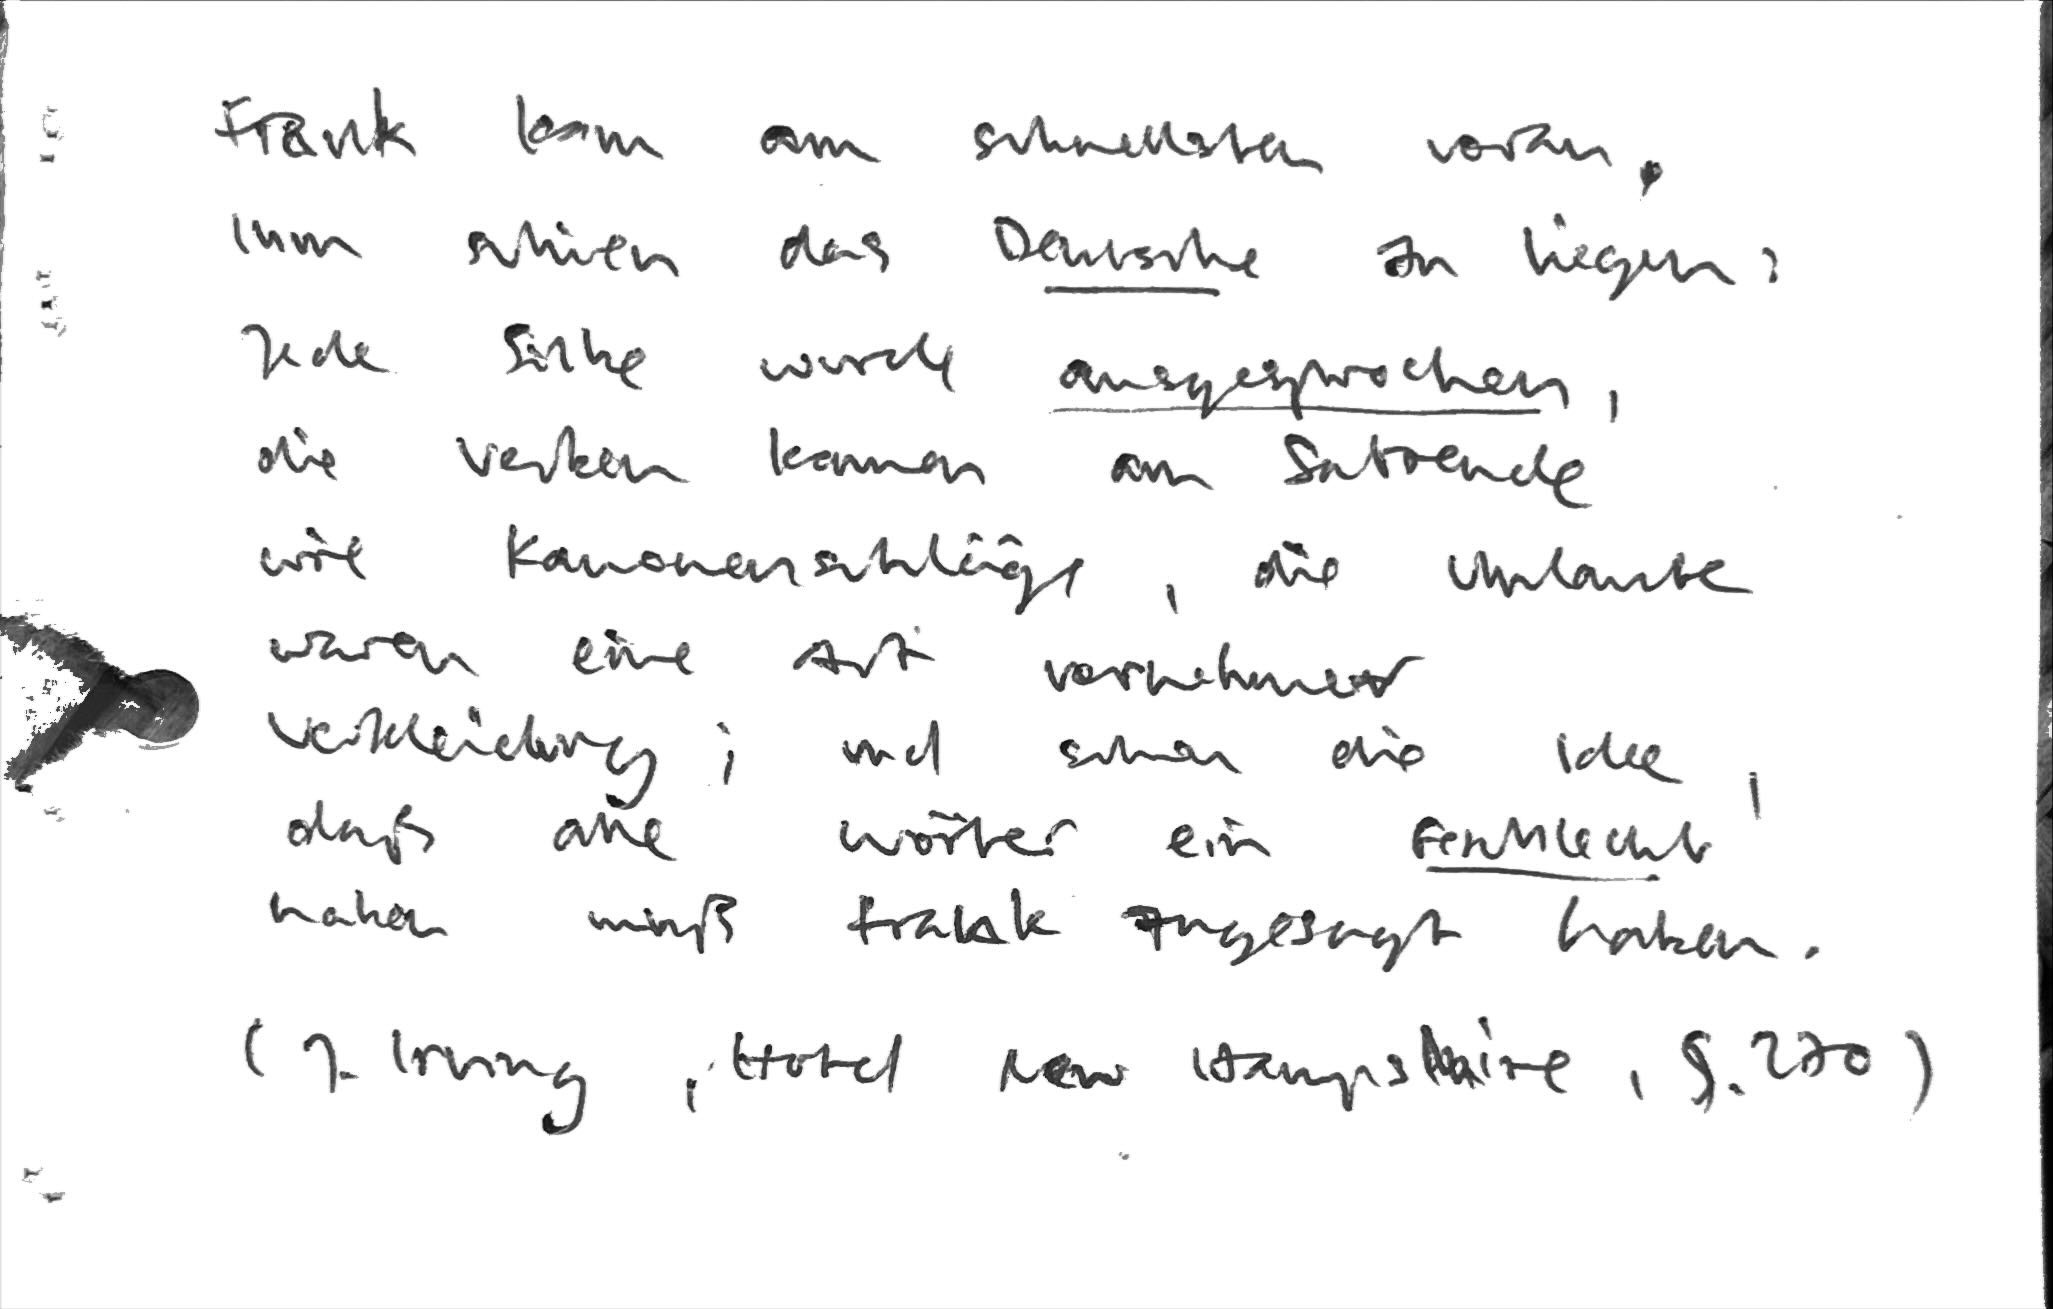 Frank kam am schnellsten voran,
ihm schien das Deutsche zu liegen:
Jede Silbe wurde ausgesprochen,
die Verben kamen am Satzende
wie Kanonenschläge, die Umlaute
waren eine Art vornehmer
Verkleidung; und schon die Idee,
daß alle Wörter ein Geschlecht
haben muß Frank zugesagt haben.
(J. Irving, Hotel New Hampshire, S. 270)